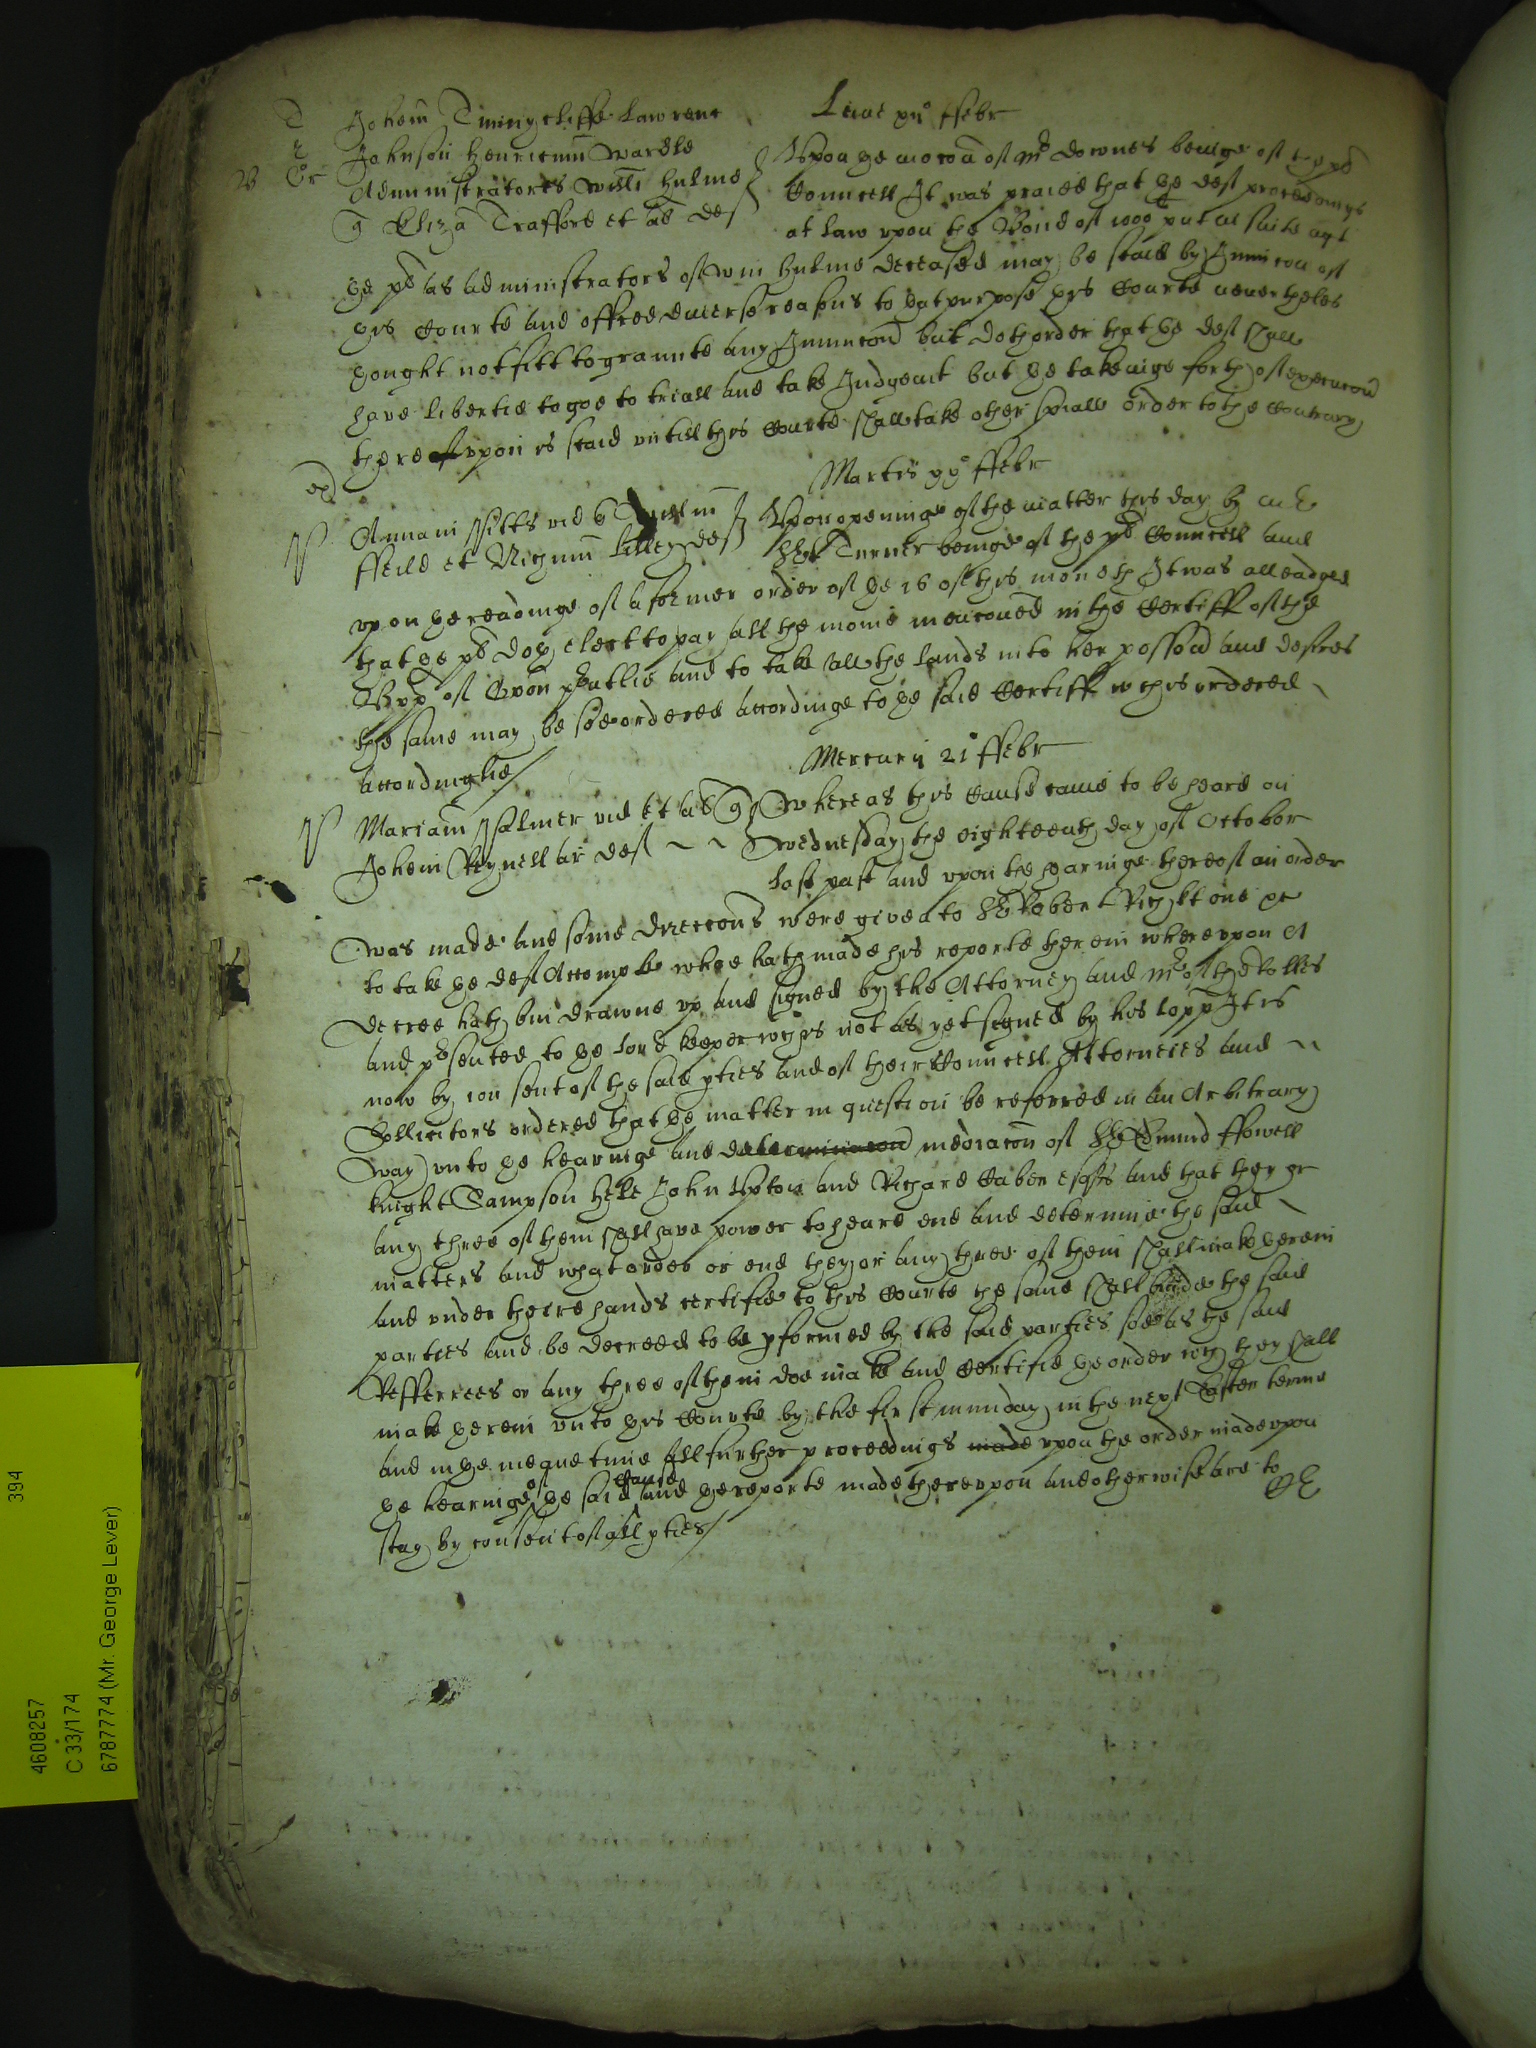 Lune xij° ffebr
Johem Twinycliffe Lawrenc
Johnson Henricum Wardle
Administratores Willi Hulme
q Eliza Trafford et al def
Vpon ye mocon of Mr Downes beinge of ye pl
Councell It was praied that ye def proceedings
at law vpon the Bond of 1000 li put in suite agt
ye pl as administrators of Wm Hulme deceased may be staid by Iniuncon of
this Courte and offred diuerse reasons to that purpose this Courte neuertheles
thought not fitt to graunte any Iniuncon but doth order that ye def shall
have libertie to goe to triall and take Judgemt but ye takeinge forth of execucon
therevpon is staid vntill this Courte shall take other spiall order to the contrary
Martis 20° ffebr
Annam Pitts vid q Willm
ffeild et Richum Lilley def
Vpon openinge of the matter this day by mr
Turner beinge of the pl Councell and
vpon ye readinge of a former order of ye 16 of this moneth It was alleadged
that ye pl doth elect to pay all the monie mencioned in the Certiff of the
and to take all the lands into her possion and desires
the same may be soe ordered accordinge to ye said Certiff wch is ordered
accordinglie
Mercurij 21° ffebr
Mariam Palmer vid et al q
Johem Reynell ar def
Whereas this cause came to be heard on
Wednesday the eighteenth day of October
last past and vpon the hearinge thereof an order
was made and some direccons were given to Sr Robert Rich kt one &c
to take ye def Accompte whoe hath made his reporte therein wherevpon A
decree hath bin drawne vp and signed by the Attorney and Mr of the Rolles
and psented to ye lord keeper wch is not as yet signed by his lopp It is
now by consent of the said pties and of their Councell Attorneies and
Sollicitors ordered that ye matter in question be referred in an Arbitrary
way vnto ye hearinge and determinacon mediacon of Sr Edmund ffowell
knight Sampson Hele John Vpton and Richard Caben esqrs and that they or
any three of them shall have power to heare end and determine the said
matters and what order or end they or any three of them shall make therein
and vnder theire hands certifie to this Courte the same shall binde the said
parties and be decreed to be pformed by the said parties soe as the said
Refferrees or any three of them doe make and Certifie ye order wch they shall
make therein vnto this Courte by the first munday in the next Easter terme
and in ye meane time all further proceedings made vpon the order made vpon
ye hearinge of ye said cause and ye reporte made therevpon and otherwise are to
stay by consent of all pties
394
4608257
C 33/174
6787774 (Mr. George Lever)